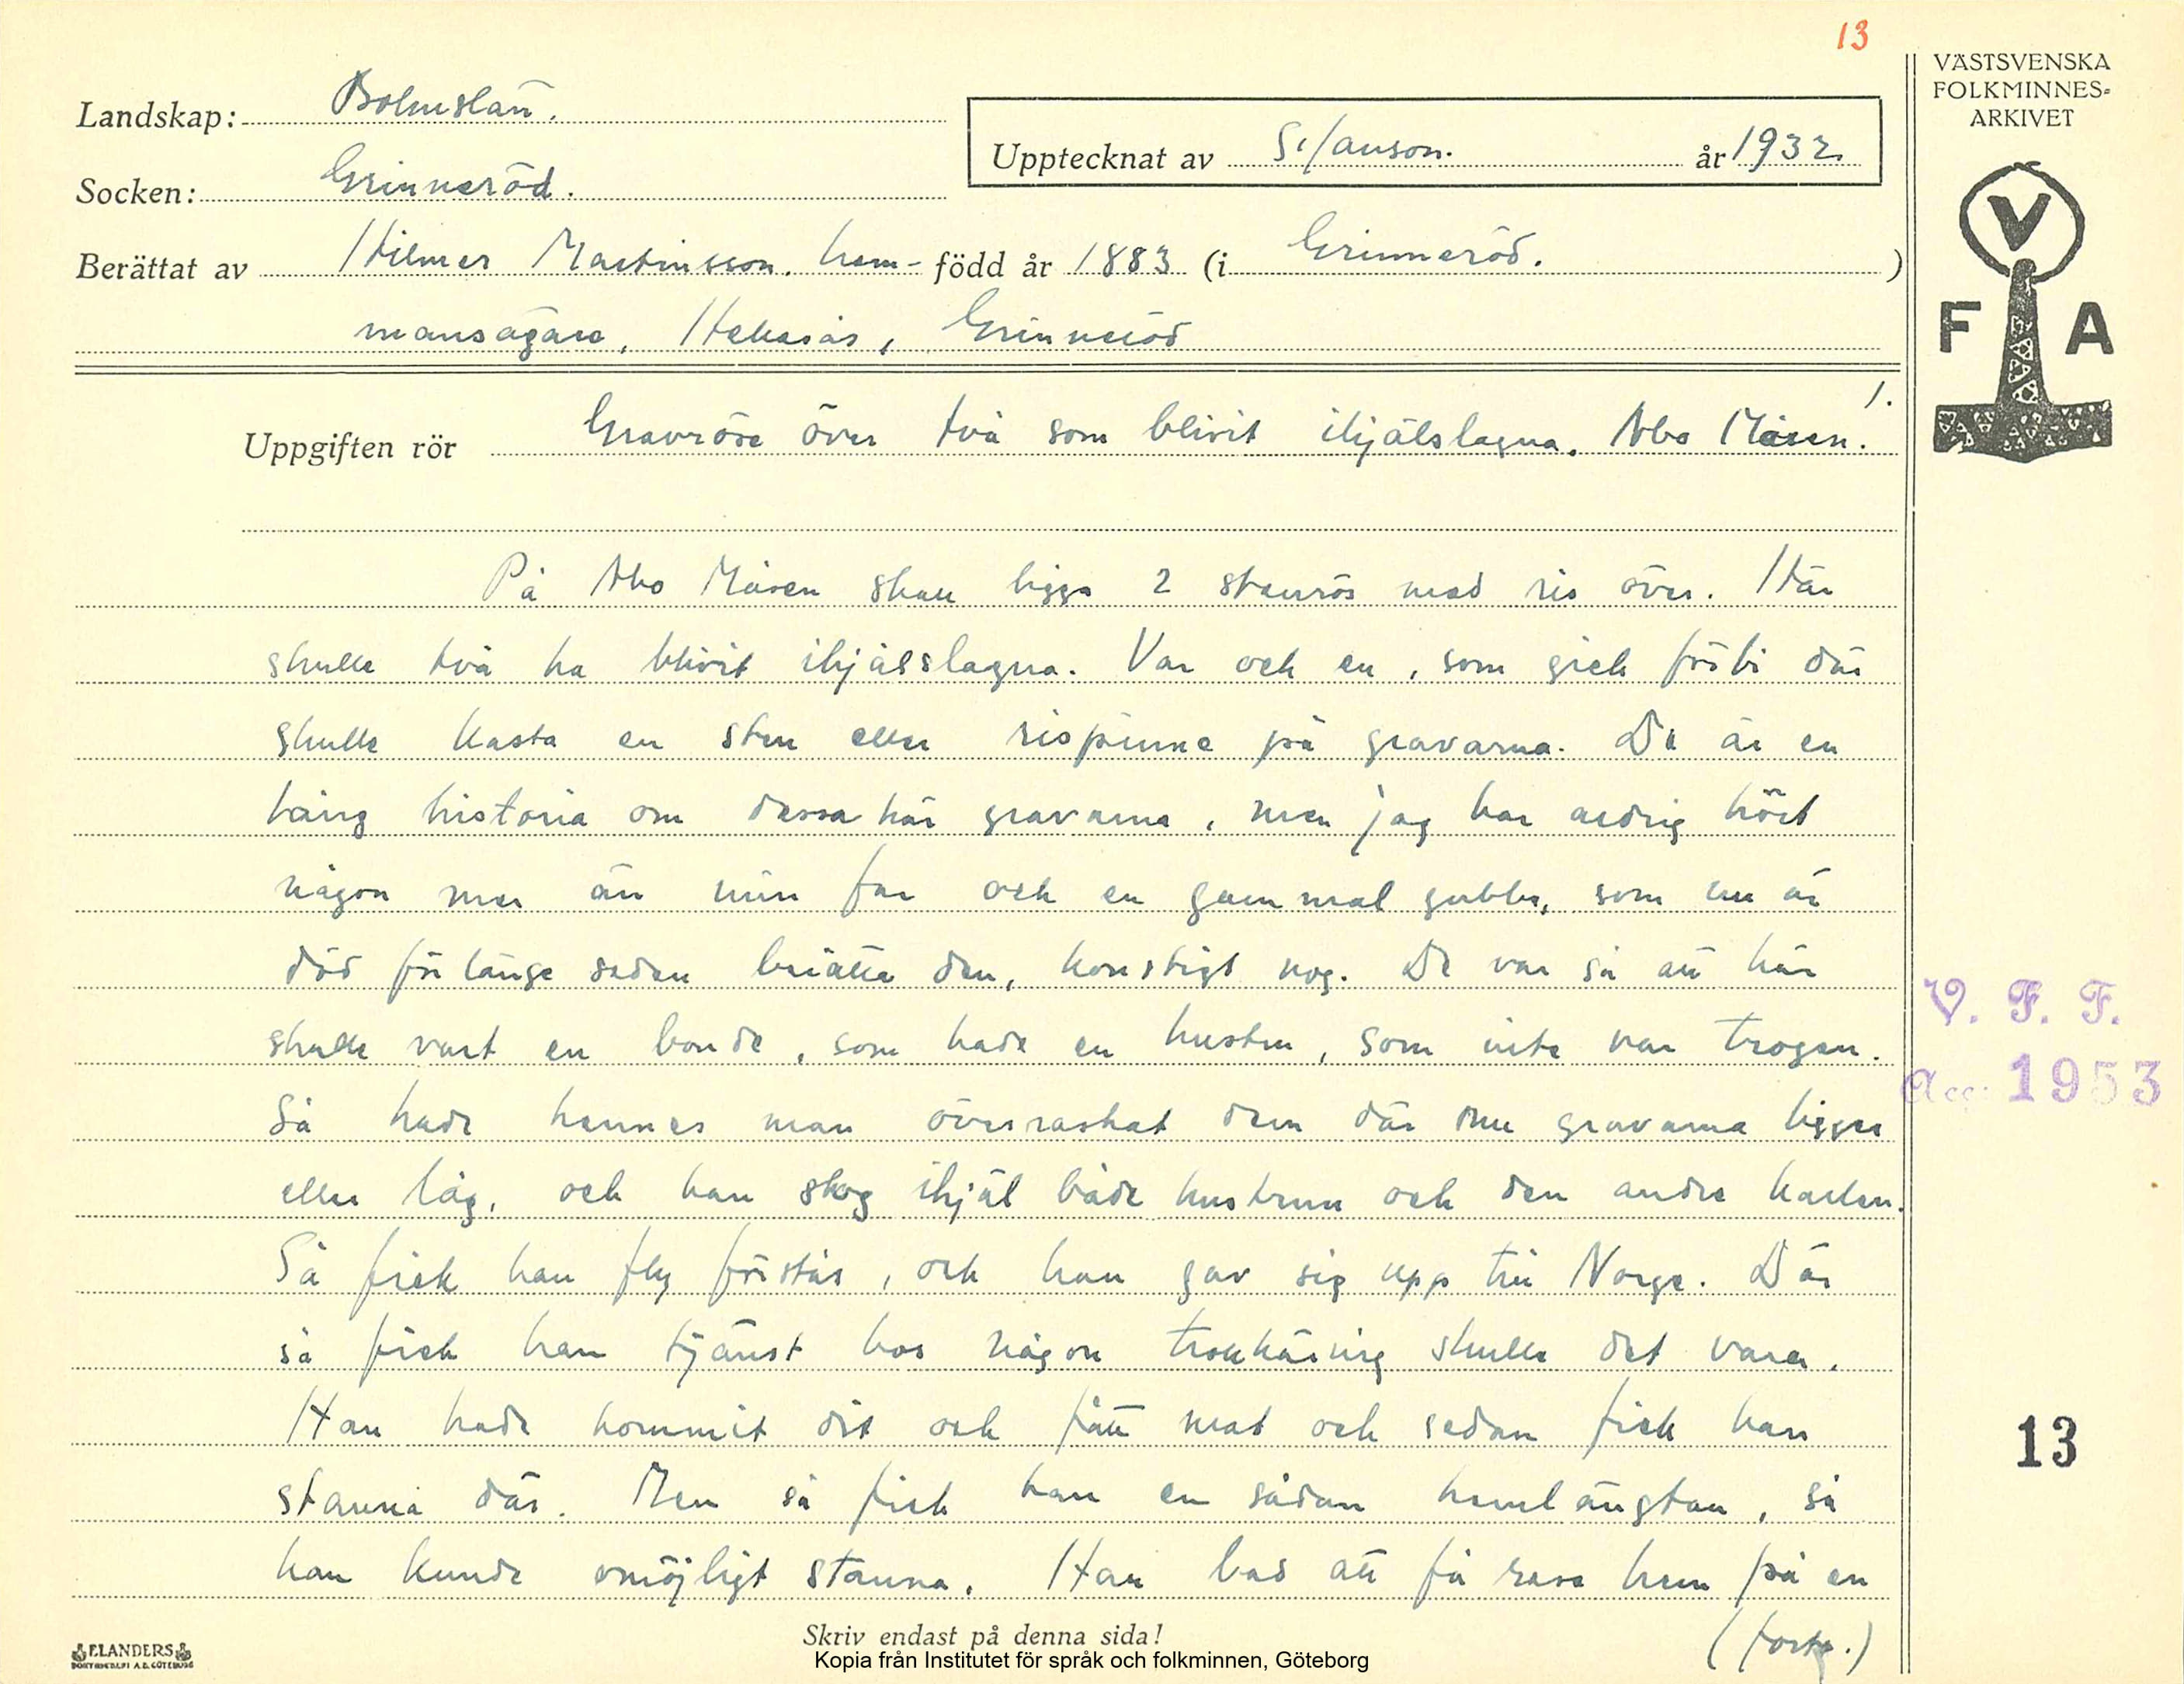 13
VÄSTSVENSKA
FOLKMINNES-
ARKIVET
Landskap: Bohuslän.
Upptecknat av S. Janson. år 1932
Socken: Grinneröd.
Berättat av Hilmer Martinsson. hem- född år 1883 (i Grinneröd.)
mansägare, Grinneröd
V
F A
1.
Uppgiften rör Gravröse över två som blivit ihjälslagna. Måsen.
På Måsen skall ligga 2 stenrös med ris över. Här
skulle två ha blivit ihjälslagna. Var och en, som gick förbi där
skulle kasta en sten eller rispinne på gravarna. De är en
lång historia om dessa här gravarna, men jag har aldrig hört
någon mer än min far och en gammal gubbe, som nu är
död för länge sedan berätta den, konstigt nog. De var så att här
skulle vart en bonde, som hade en hustru, som inte var trogen.
Så hade hennes man överraskat dem där nu gravarna ligger
eller låg, och han slog ihjäl både hustrun och den andre karlen.
Så fick han fly förstås, och han gav sig upp till Norge. Där
så fick han tjänst hos någon trollkäring skulle det vara.
Han hade kommit dit och fått mat och sedan fick han
stanna där. Men så fick han en sådan hemlängtan, så
han kunde omöjligt stanna. Han bad att få resa hem på en
(forts.)
V. F. F.
Acc: 1953
13
Skriv endast på denna sida!
ELANDERS
BOKTRYCKERI A.B. GÖTEBORG
Kopia från Institutet för språk och folkminnen, Göteborg